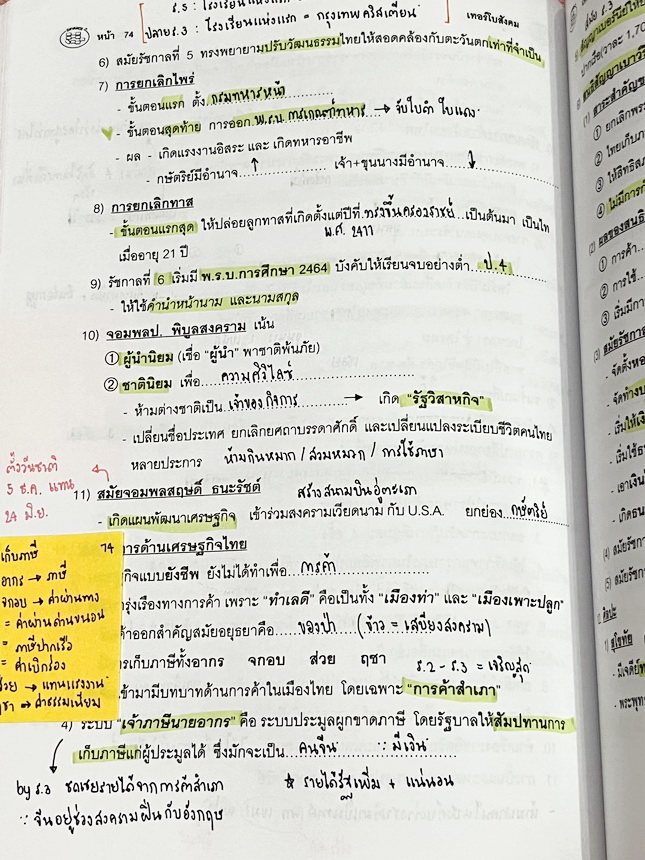 ร.5 : โรงเรียนแห่งแรก
หน้า 74 ปลาย ร.3 : โรงเรียนแห่งแรก = กรุงเทพคริสเตียน เทอร์โบสังคม
6) สมัยรัชกาลที่ 5 ทรงพยายามปรับวัฒนธรรมไทยให้สอดคล้องกับตะวันตกเท่าที่จำเป็น
7) การยกเลิกไพร่
- ขั้นตอนแรก ตั้ง กรมทหารหน้า
- ขั้นตอนสุดท้าย การออก พ.ร.บ. การเกณฑ์ทหาร → จับใบดำ ใบแดง
- ผล - เกิดแรงงานอิสระ และ เกิดทหารอาชีพ
- กษัตริย์มีอำนาจ ↑ เจ้า+ขุนนางมีอำนาจ ↓
8) การยกเลิกทาส
- ขั้นตอนแรกสุด ให้ปล่อยลูกทาสที่เกิดตั้งแต่ปีที่ ทรงขึ้นครองราชย์ เป็นต้นมา เป็นไท
พ.ศ. 2411
เมื่ออายุ 21 ปี
9) รัชกาลที่ 6 เริ่มมี พ.ร.บ.การศึกษา 2464 บังคับให้เรียนจบอย่างต่ำ ป.4
- ให้ใช้คำนำหน้านาม และนามสกุล
10) จอมพลป. พิบูลสงคราม เน้น
① ผู้นำนิยม (เชื่อ "ผู้นำ" พาชาติพ้นภัย)
② ชาตินิยม เพื่อ ความศิวิไลซ์
- ห้ามต่างชาติเป็น เจ้าของกิจการ → เกิด "รัฐวิสาหกิจ"
- เปลี่ยนชื่อประเทศ ยกเลิกยศถาบรรดาศักดิ์ และเปลี่ยนแปลงระเบียบชีวิตคนไทย
หลายประการ ห้ามกินหมาก / สวมหมวก / การใช้ภาษา
ตั้งวันชาติ
5 ธ.ค. แทน
24 มิ.ย.
11) สมัยจอมพลสฤษดิ์ ธนะรัชต์ สร้างสนามบินอู่ตะเภา
- เกิดแผนพัฒนาเศรษฐกิจ เข้าร่วมสงครามเวียดนาม กับ U.S.A. ยกย่อง กษัตริย์
การด้านเศรษฐกิจไทย
กิจแบบยังชีพ ยังไม่ได้ทำเพื่อ การค้า
รุ่งเรืองทางการค้า เพราะ "ทำเลดี" คือเป็นทั้ง "เมืองท่า" และ "เมืองเพาะปลูก"
ค้าออกสำคัญสมัยอยุธยาคือ ของป่า (ข้าว = เสบียงสงคราม)
การเก็บภาษีทั้งอากร จกอบ ส่วย ฤชา ร.2 - ร.3 = เจริญสุด
เข้ามามีบทบาทด้านการค้าในเมืองไทย โดยเฉพาะ "การค้าสำเภา"
4) ระบบ "เจ้าภาษีนายอากร" คือ ระบบประมูลผูกขาดภาษี โดยรัฐบาลให้สัมปทานการ
เก็บภาษีแก่ผู้ประมูลได้ ซึ่งมักจะเป็น คนจีน ∵ มีเงิน
by ร.3 ชดเชยรายได้จากการค้าสำเภา
☆ รายได้รัฐเพิ่ม + แน่นอน
∵ จีนอยู่ช่วงสงครามฝิ่นกับอังกฤษ
เก็บภาษี 74
อากร → ภาษี
จกอบ → ค่าผ่านทาง
= ค่าผ่านด่านขนอน
= ภาษีปากเรือ
= ค่าเบิกร่อง
ส่วย → แทนแรงงาน
ฤชา → ค่าธรรมเนียม
(1) สาระสำคัญของ
① ยกเลิกพระ
② ไทยเก็บภา
③ ให้สิทธิสภ
④ ไม่มีการกำ
① การค้า
② การใช้
③ เริ่มมีการ
(3) สมัยรัชกาล
(4) สมัยรัชกา
(5) สมัยรัชกา
1) สุโขทัย